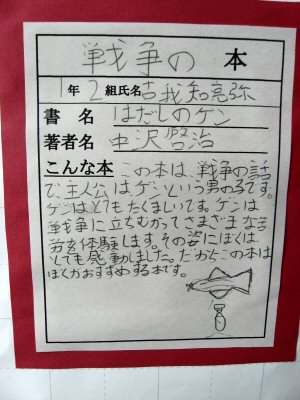 戦争の 本
1年2組氏名古我知亮弥
書 名 はだしのゲン
著者名 中沢啓治
こんな本 この本は、戦争の話
で主人公はゲンという男の子です。
ゲンはとてもたくましいです。ゲンは
戦争に立ちむかってさまざまな苦
労を体験します。その姿にぼくは、
とても感動しました。だからこの本は
ぼくがおすすめする本です。